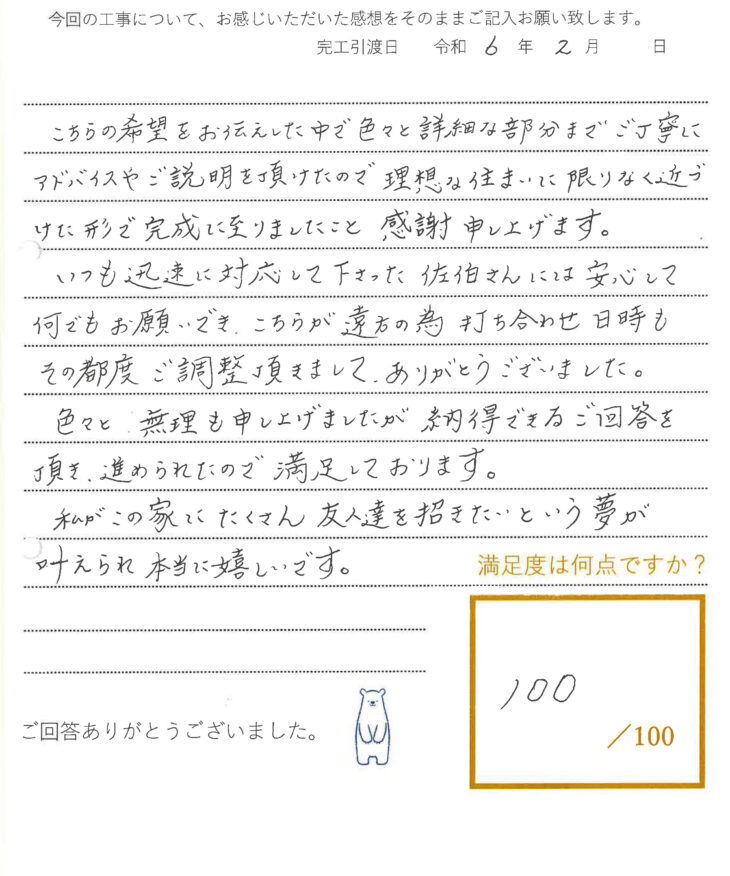 今回の工事について、お感じいただいた感想をそのままご記入お願い致します。
完工引渡日 令和 6 年 2 月 日
こちらの希望をお伝えした中で色々と詳細な部分までご丁寧に
アドバイスやご説明を頂けたので理想な住まいに限りなく近づ
けた形で完成に至りましたこと感謝申し上げます。
いつも迅速に対応して下さった佐伯さんには安心して
何でもお願いでき、こちらが遠方の為打ち合わせ日時も
その都度ご調整頂きまして、ありがとうございました。
色々と無理も申し上げましたが納得できるご回答を
頂き、進められたので満足しております。
私がこの家にたくさん友人達を招きたいという夢が
叶えられ本当に嬉しいです。
満足度は何点ですか？
100
／100
ご回答ありがとうございました。